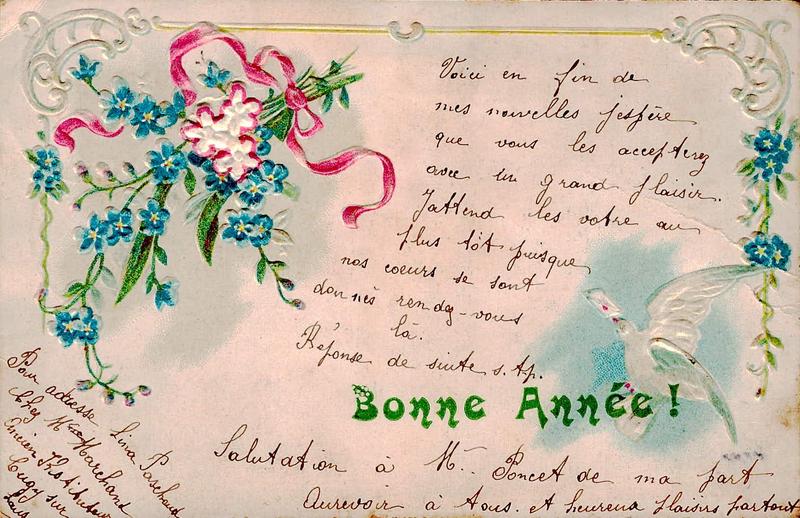 Voici en fin de
mes nouvelles j'espère
que vous les accepterez
avec un grand plaisir.
J'attend les votre au
plus tôt puisque
nos coeurs se sont
donnés rendez-vous
là.
Réponse de suite s.t.p.
Bonne Année!
Salutation à M. Poncet de ma part
Aurevoir à tous et heureux plaisirs partout
Pour adresse Lina Paschoud
Chez Mme Marchand
Ancien
Cugy sur